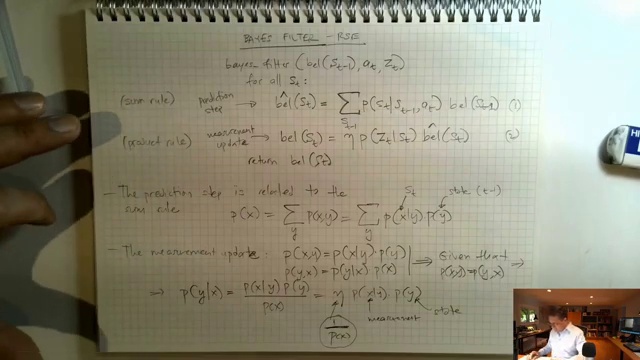 BAYES FILTER - RSE
bayes filter (bel(S_{t-1}), a_t, Z_t)
for all S_t:
(sum rule) prediction step → b̂el(S_t) = Σ_{S_{t-1}} p(S_t|S_{t-1}, a_t) bel(S_{t-1}) (1)
(product rule) measurement update → bel(S_t) = η p(Z_t|S_t) b̂el(S_t) (2)
return bel(S_t)
- The prediction step is related to the S_t state (t-1)
sum rule p(x) = Σ_y p(x,y) = Σ_y p(x|y) p(y)
- The measurement update: p(x,y) = p(x|y) · p(y) ⇒ Given that ⇒
p(y,x) = p(y|x) p(x) p(x,y) = p(y,x)
⇒ p(y|x) = p(x|y) p(y) / p(x) = η p(x|y) · p(y)
state
measurement
1/p(x)